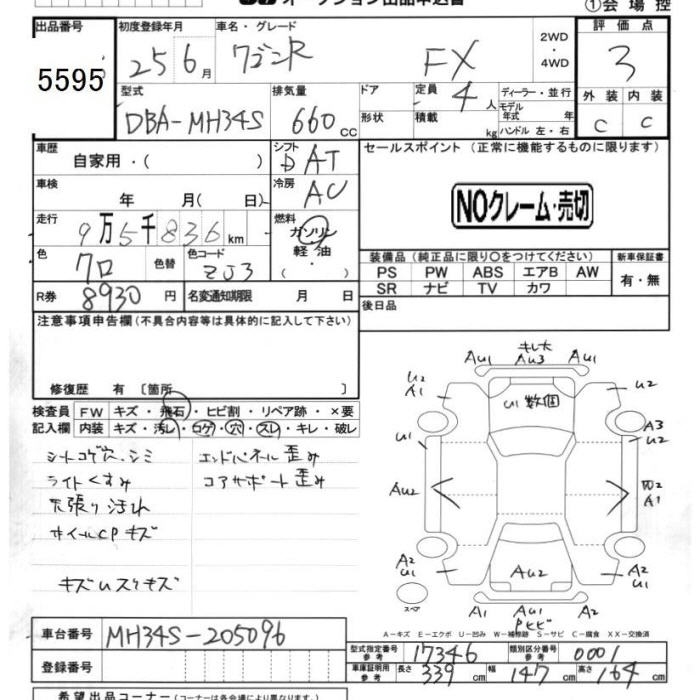 オークション出品申込書
①会場控
出品番号 5595
初度登録年月 25 6月
車名・グレード ワゴンR FX
2WD・4WD
評価点 3
型式 DBA-MH34S
排気量 660 cc
ドア形状
定員 4人
積載 kg
ディーラー・並行
モデル年式 年式
ハンドル 左・右
外装 C 内装 C
車歴 自家用・( )
シフト D AT
セールスポイント (正常に機能するものに限ります)
車検 年 月( 日)
冷房 AC
NOクレーム・売切
走行 9万5千836km
燃料 ガソリン・軽油・
色 クロ 色替 色コード ZJ3
装備品 (純正品に限り○をつけてください) 新車保証書
PS PW ABS エアB AW 有・無
SR ナビ TV カワ
R券 8930円 名変通知期限 月 日
後日品
注意事項申告欄(不具合内容等は具体的に記入して下さい)
修復歴 有 [箇所 ]
検査員記入欄
FW キズ・飛石・ヒビ割・リペア跡・×要
内装 キズ・汚レ・コゲ・穴・スレ・キレ・破レ
シートコゲ穴、シミ エンドパネル歪み
ライトくすみ コアサポート歪み
天張り汚れ
ホイールCPキズ
キズUスリキズ
キレ大
AU1 AU3 AU1
U2 A1 U1数個 U2
A3 U2
U1
AU2 A1
A2 U1 AU2 A2 U1
スペア A1 AU1 A1
Pヒビ
A-キズ E-エクボ U-凹み W-補修跡 S-サビ C-腐食 XX-交換済
車台番号 MH34S-205096
型式指定番号 参考 17346 類別区分番号 参考 0001
登録番号
車庫証明用 参考 長さ 339 cm 幅 147 cm 高さ 164 cm
希望出品コーナー (コーナーは各会場で異なります。)